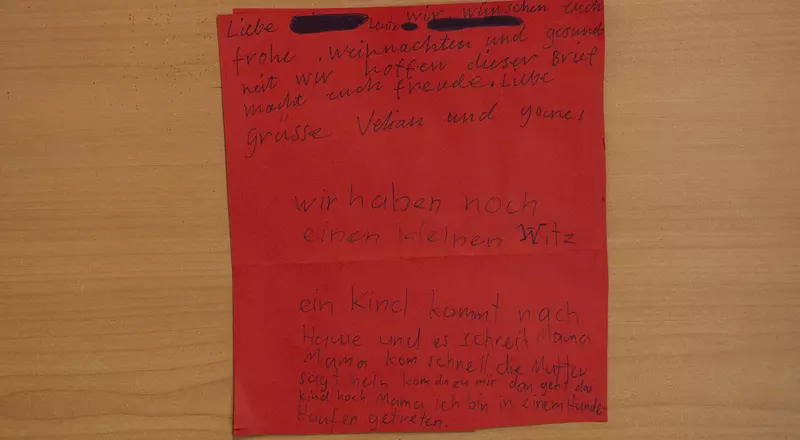 Liebe Leute wir wünschen euch
frohe Weihnachten und gesund
heit wir hoffen dieser Brief
macht euch freude. Liebe
Grüsse und
wir haben noch
einen kleinen Witz
ein Kind kommt nach
Hause und es schreit Mama
Mama kom schnell die Mutter
sagt nein kom du zu mir dan geht das
kind hoch Mama ich bin in einem Hunde
Haufen getreten.